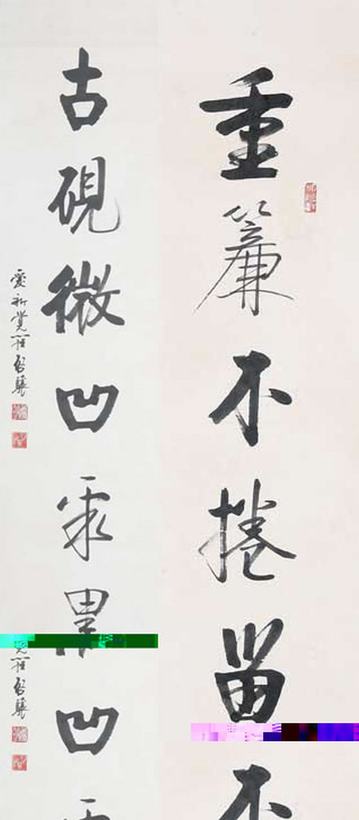 重簾不捲留不
古硯微凹聚墨凹
愛新覺羅啟驤
羅啟驤